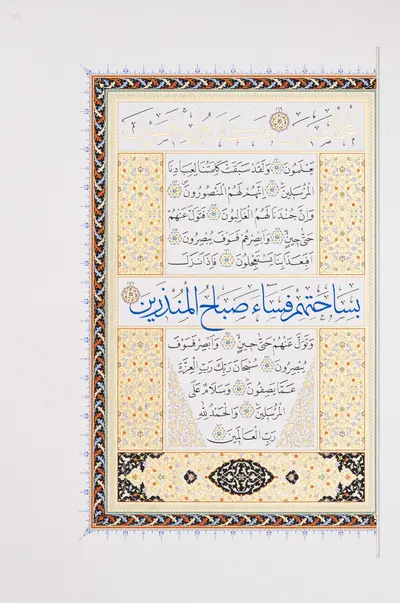 يَعْلَمُونَ وَلَقَدْ سَبَقَتْ كَلِمَتُنَا لِعِبَادِنَا
الْمُرْسَلِينَ إِنَّهُمْ لَهُمُ الْمَنْصُورُونَ
وَإِنَّ جُنْدَنَا لَهُمُ الْغَالِبُونَ فَتَوَلَّ عَنْهُمْ
حَتَّى حِينٍ وَأَبْصِرْهُمْ فَسَوْفَ يُبْصِرُونَ
أَفَبِعَذَابِنَا يَسْتَعْجِلُونَ فَإِذَا نَزَلَ
بِسَاحَتِهِمْ فَسَاءَ صَبَاحُ الْمُنْذَرِينَ
وَتَوَلَّ عَنْهُمْ حَتَّى حِينٍ وَأَبْصِرْ فَسَوْفَ
يُبْصِرُونَ سُبْحَانَ رَبِّكَ رَبِّ الْعِزَّةِ
عَمَّا يَصِفُونَ وَسَلَامٌ عَلَى
الْمُرْسَلِينَ وَالْحَمْدُ لِلَّهِ
رَبِّ الْعَالَمِينَ